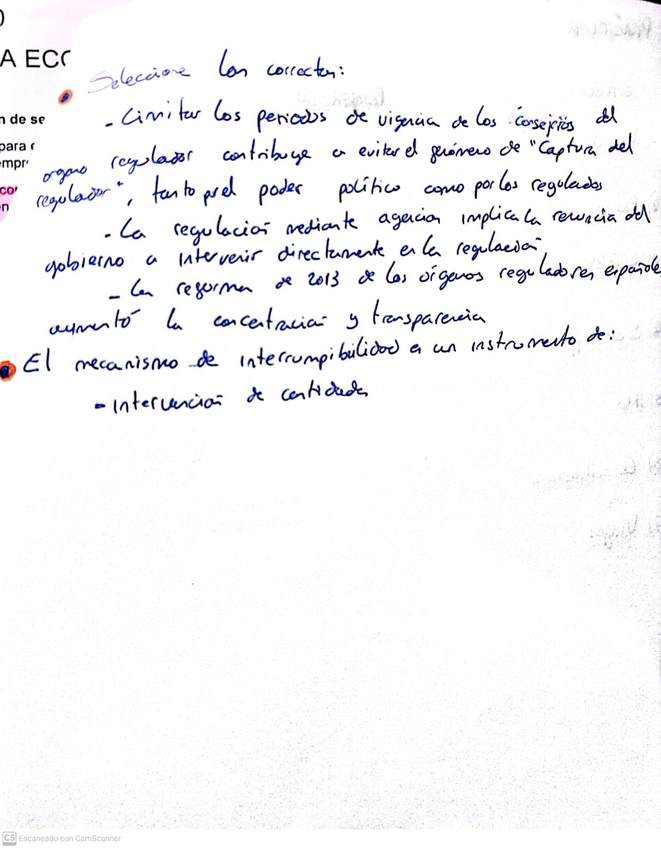 A EC
Seleccione las correctas:
n de se
- Limitar los periodos de vigencia de los consejeros del
para
organo regulador contribuye a evitar el fenómeno de "Captura del
empr
regulador", tanto por el poder político como por los regulados
co
n
- La regulación mediante agencias implica la renuncia del
gobierno a intervenir directamente en la regulación
- La reforma de 2013 de los órganos reguladores españoles
aumentó la concentración y transparencia
El mecanismo de interrumpibilidad es un instrumento de:
- Intervención de cantidades
CS Escaneado con CamScanner